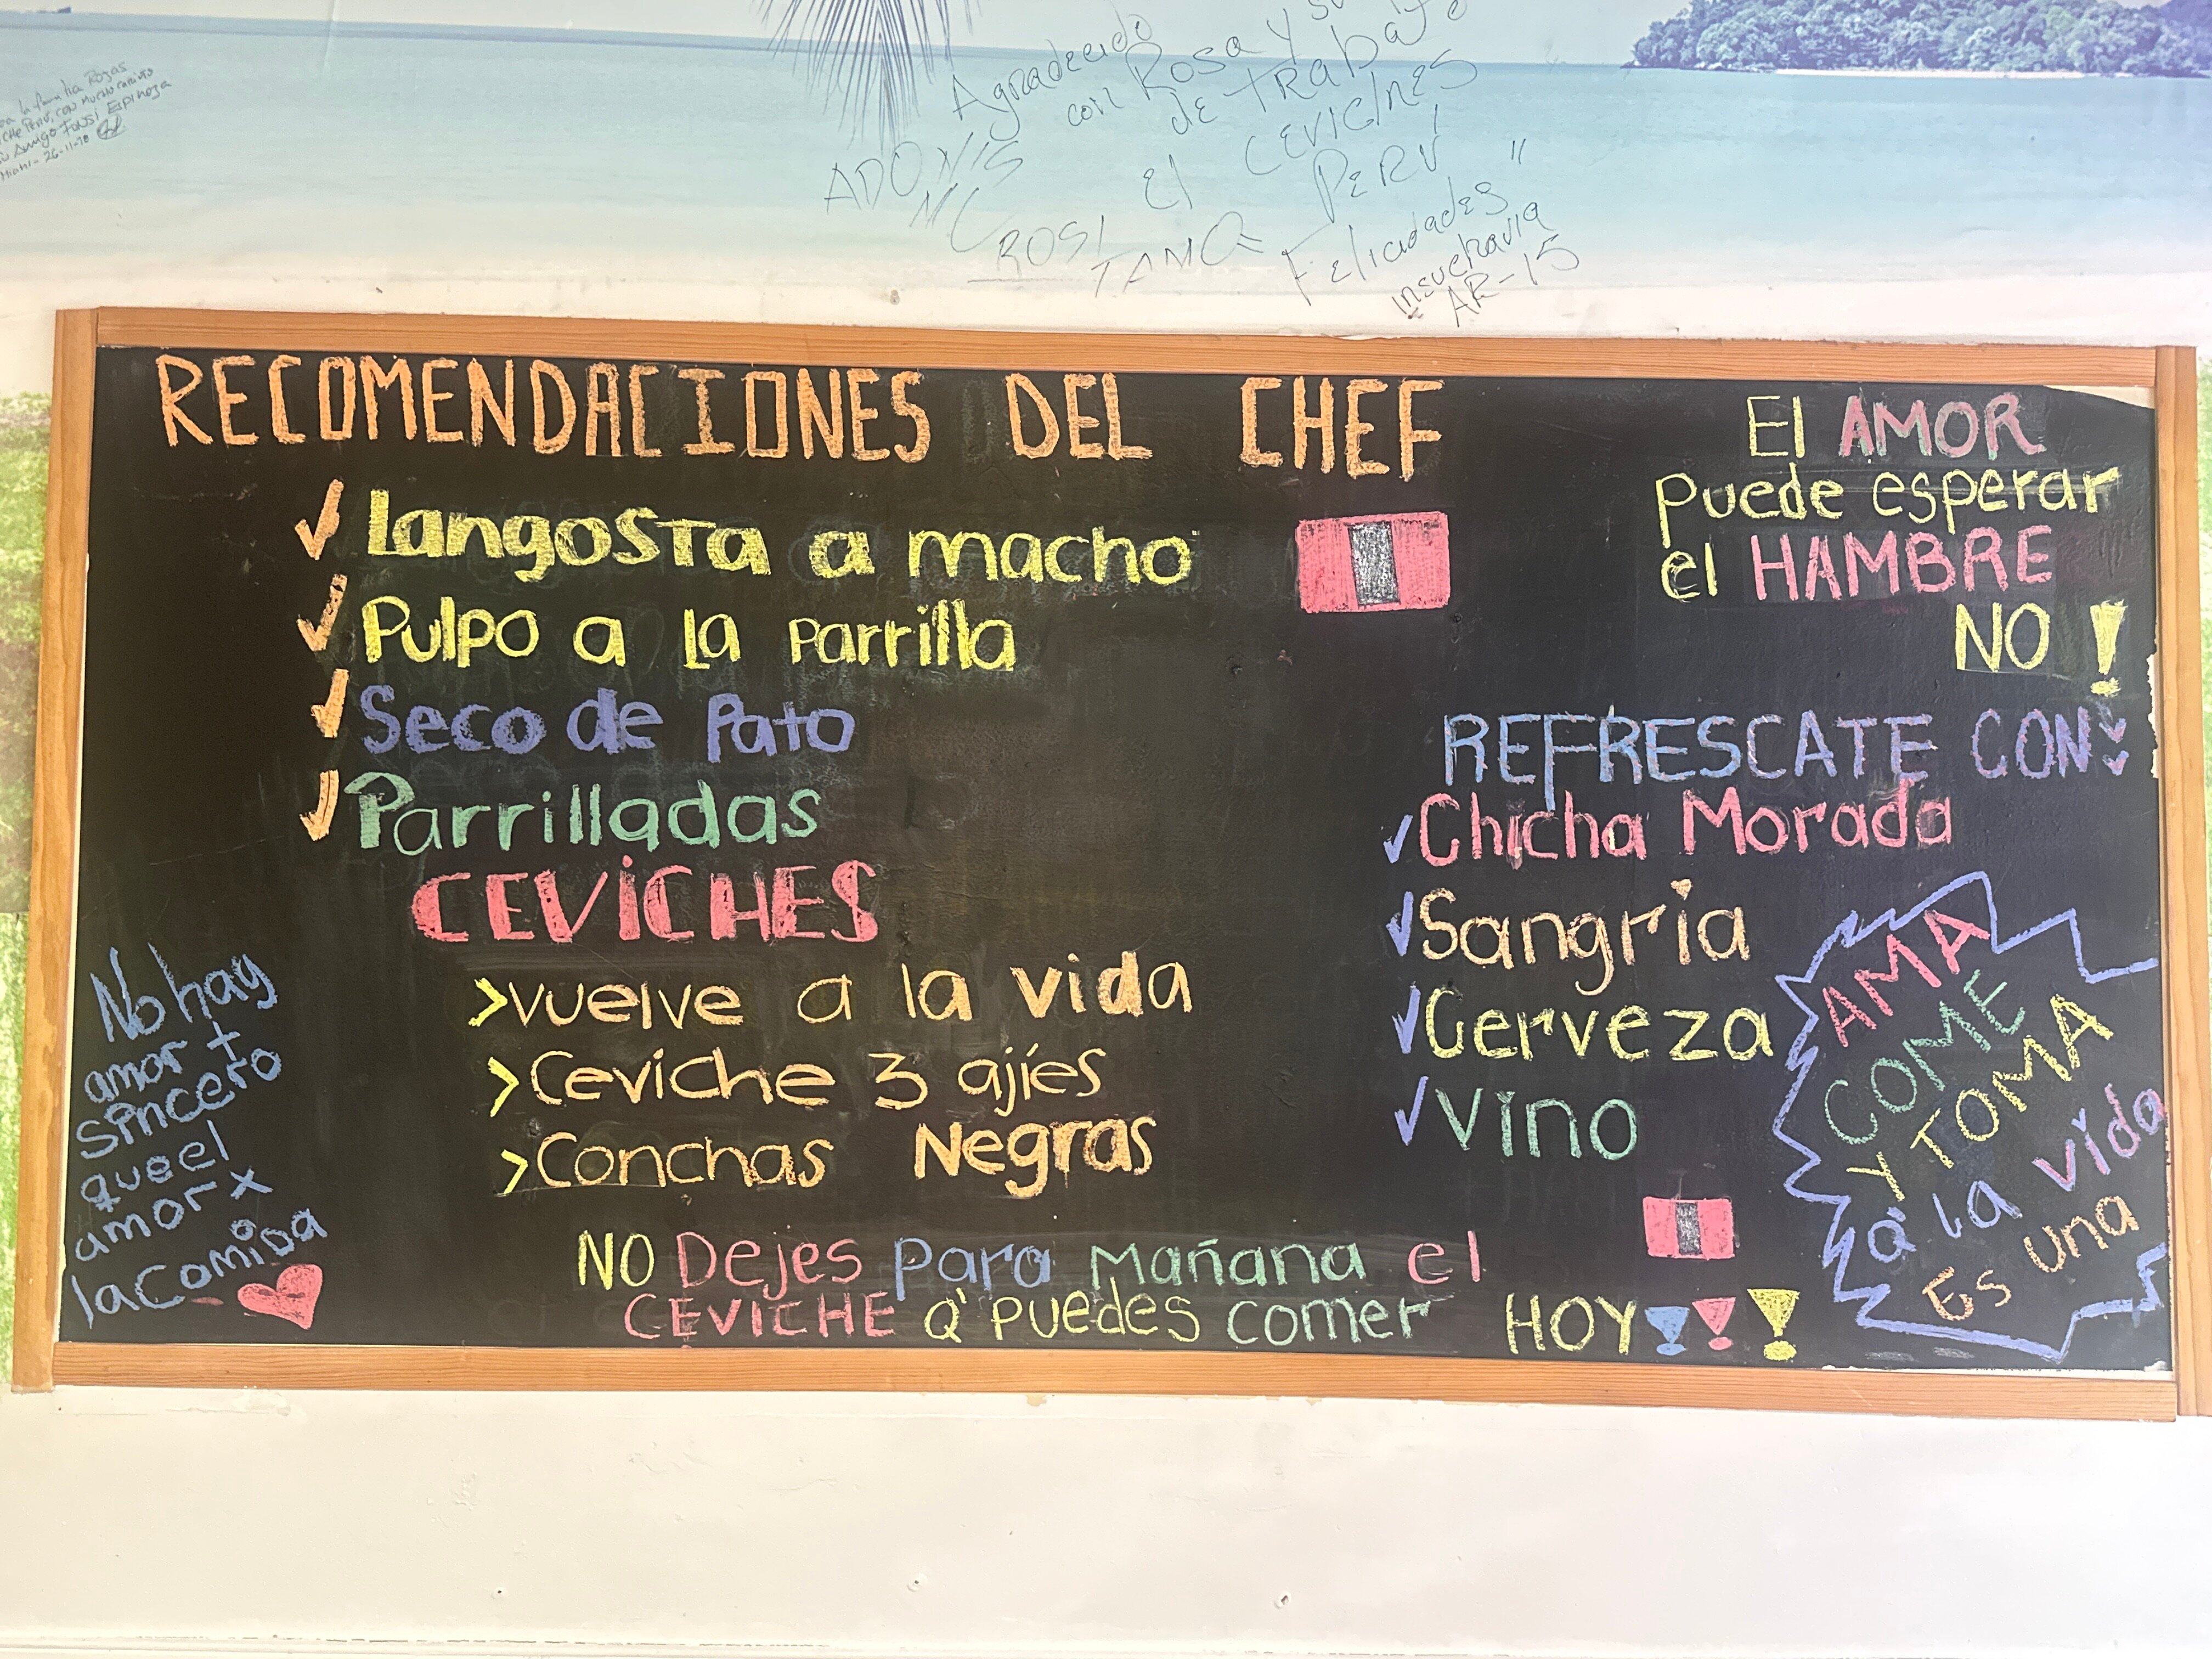 la familia Rojas
con mucho cariño
su Amigo FONSI ESPINOZA
Miami - 26-11-
Agradecido
con Rosa y su
de TRABAJO
EL CEVICHES
PERU
ADONIS
MC
ROSI
TAMO
Felicidades "
AR-15
RECOMENDACIONES DEL CHEF
Langosta a macho
Pulpo a la parrilla
Seco de Pato
Parrilladas
CEVICHES
>vuelve a la vida
>Ceviche 3 ajíes
>Conchas Negras
No hay
amor +
sincero
que el
amor x
la comida
NO Dejes Para Mañana el
CEVICHE Q' PUEDES comer HOY
El AMOR
Puede esperar
el HAMBRE
NO !
REFRESCATE CON:
Chicha Morada
Sangria
Cerveza
Vino
AMA
COME
Y TOMA
a la vida
Es una